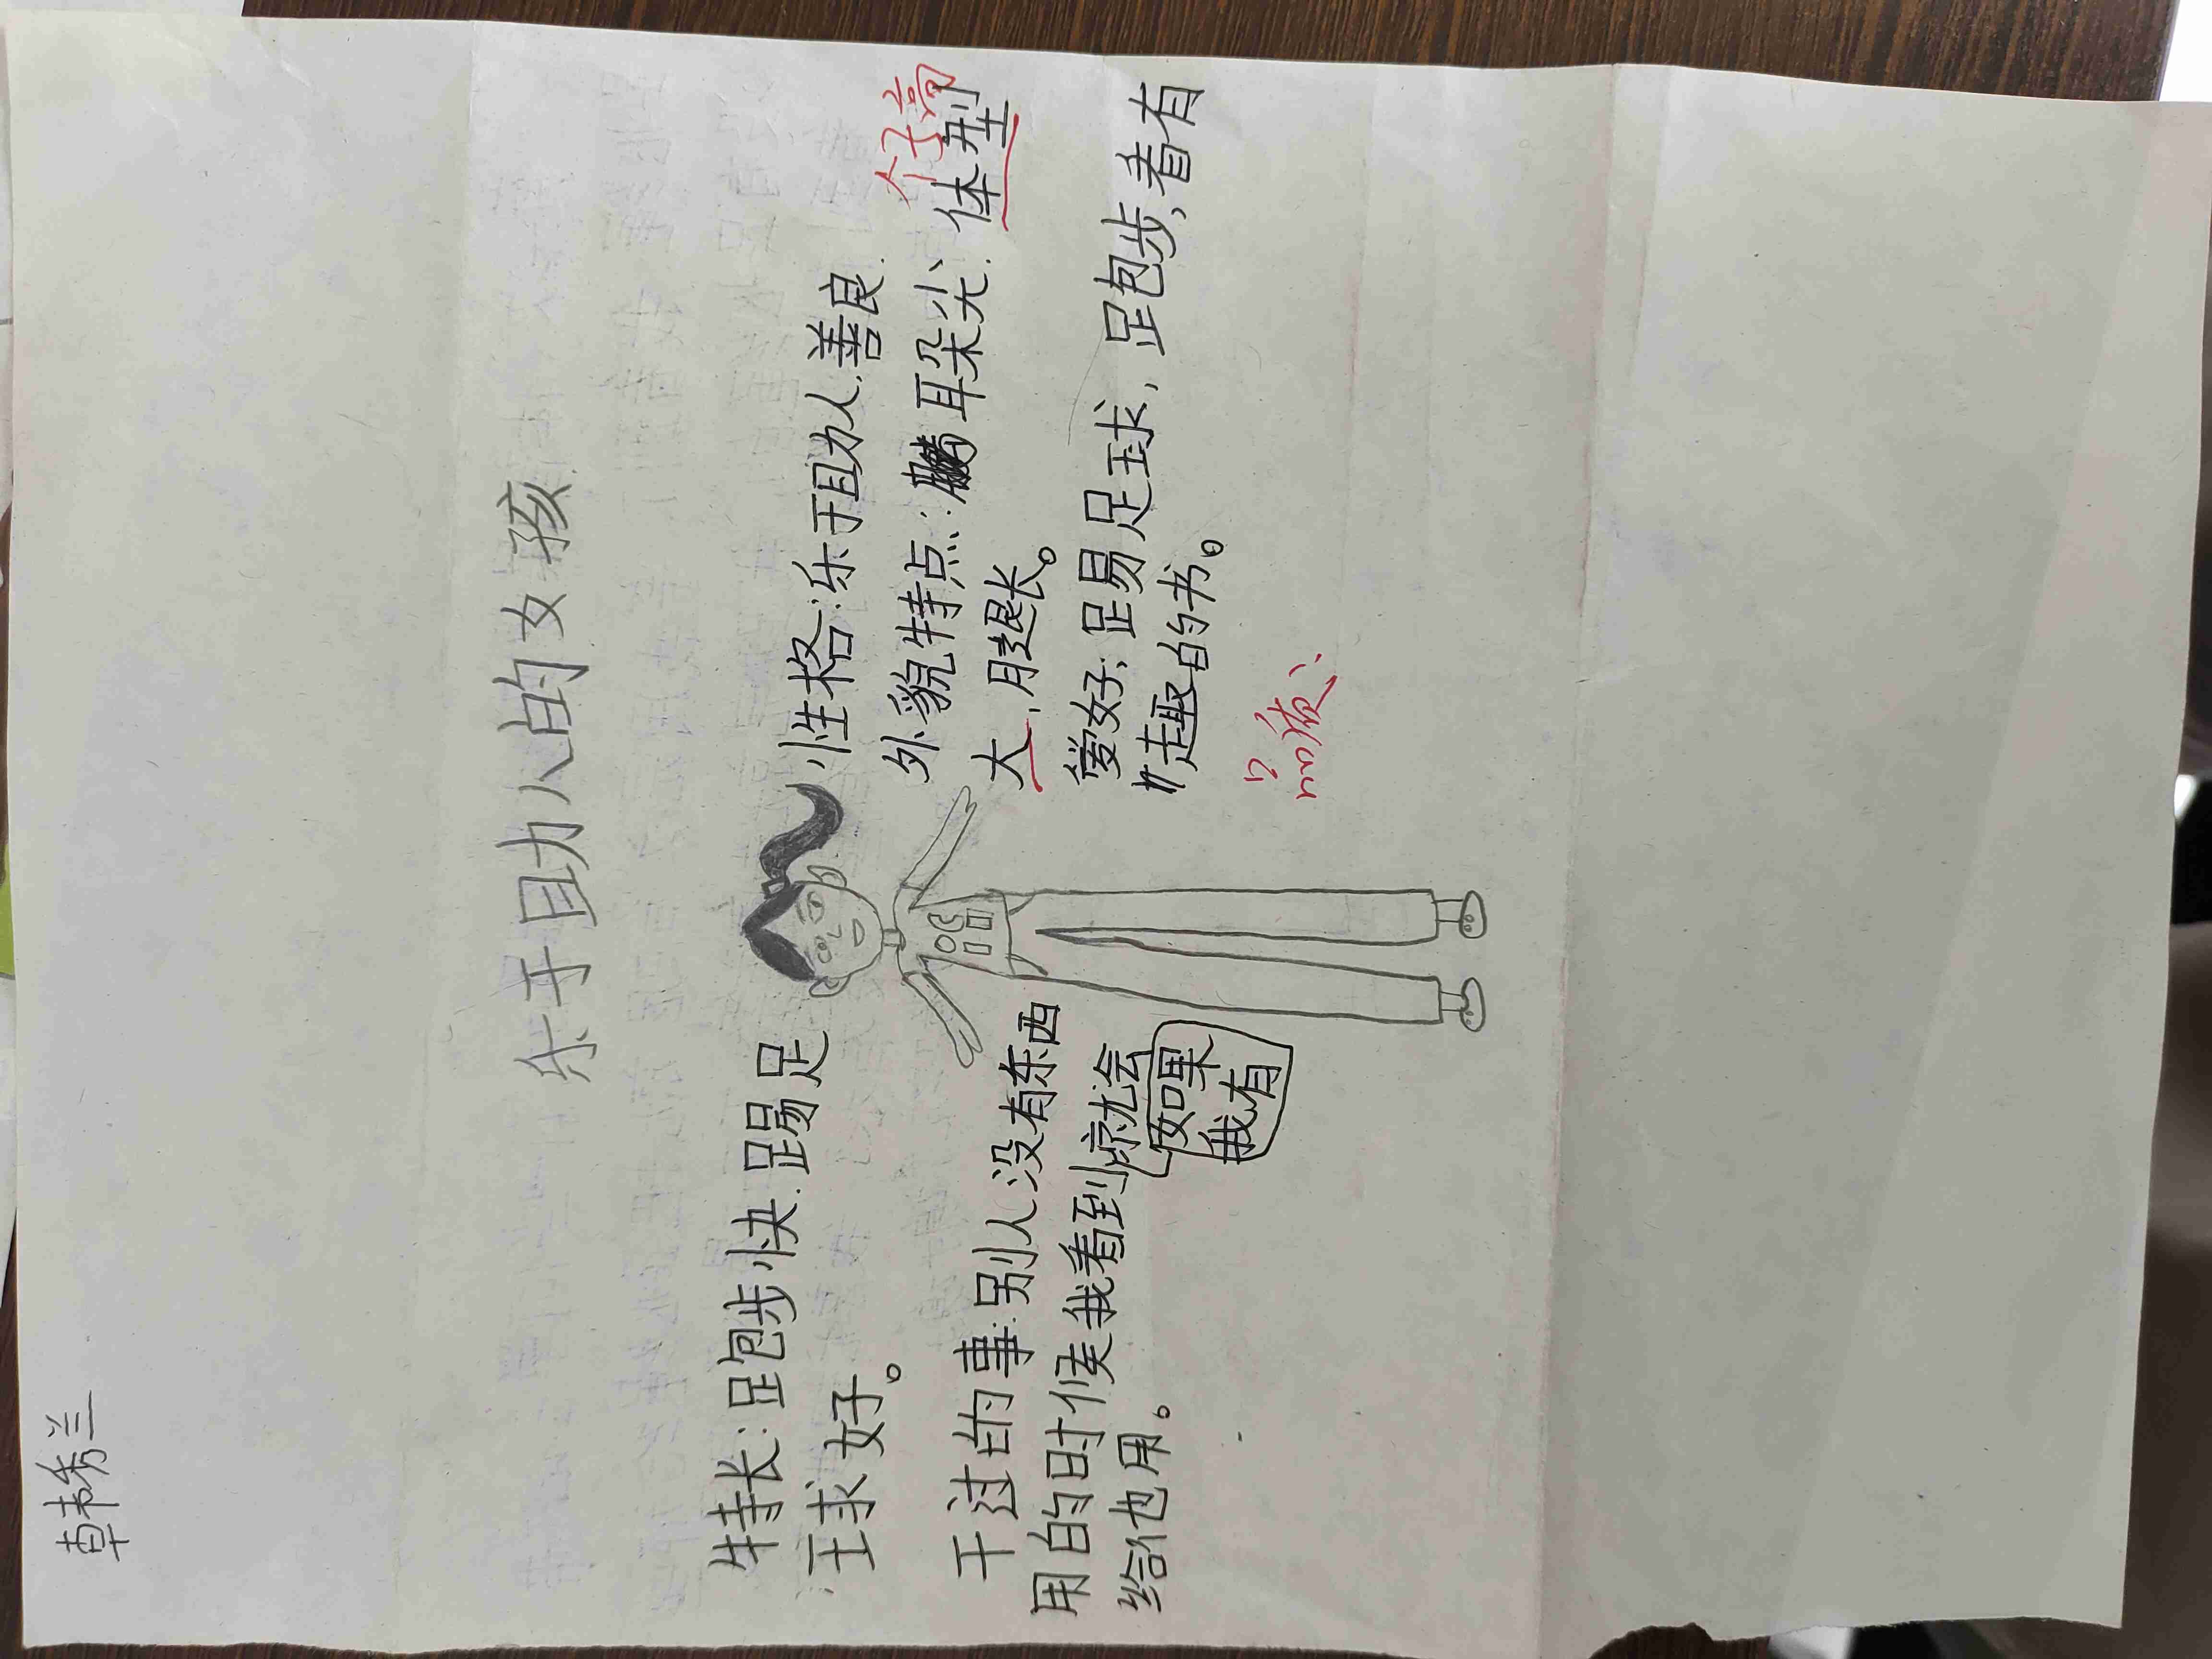 韩秀兰
乐于助人的女孩
特长:跑步快.踢足
球好。
干过的事:别人没有东西
用的时候我看到就会
如果
我有
给他用。
性格:乐于助人.善良.
个子高
外貌特点:耳朵尖.体型
大,腿长。
爱好:踢足球,跑步,看有
趣的书。